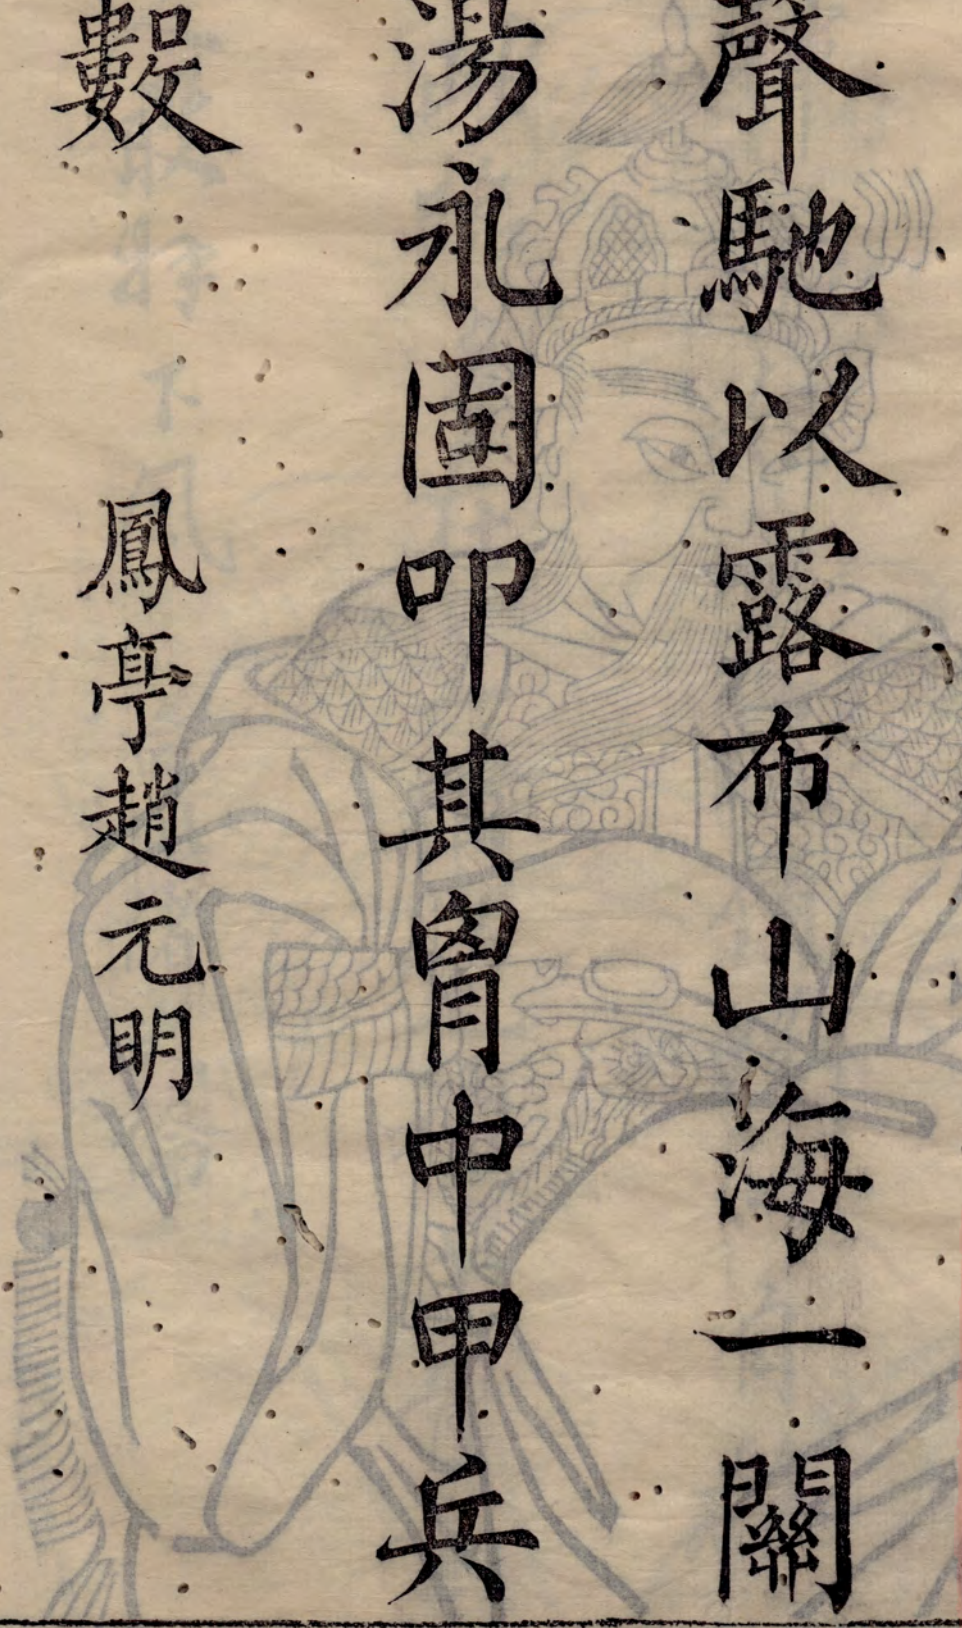 聲馳以露布山海一關
湯永固叩其胷中甲兵
數
鳳亭趙元明